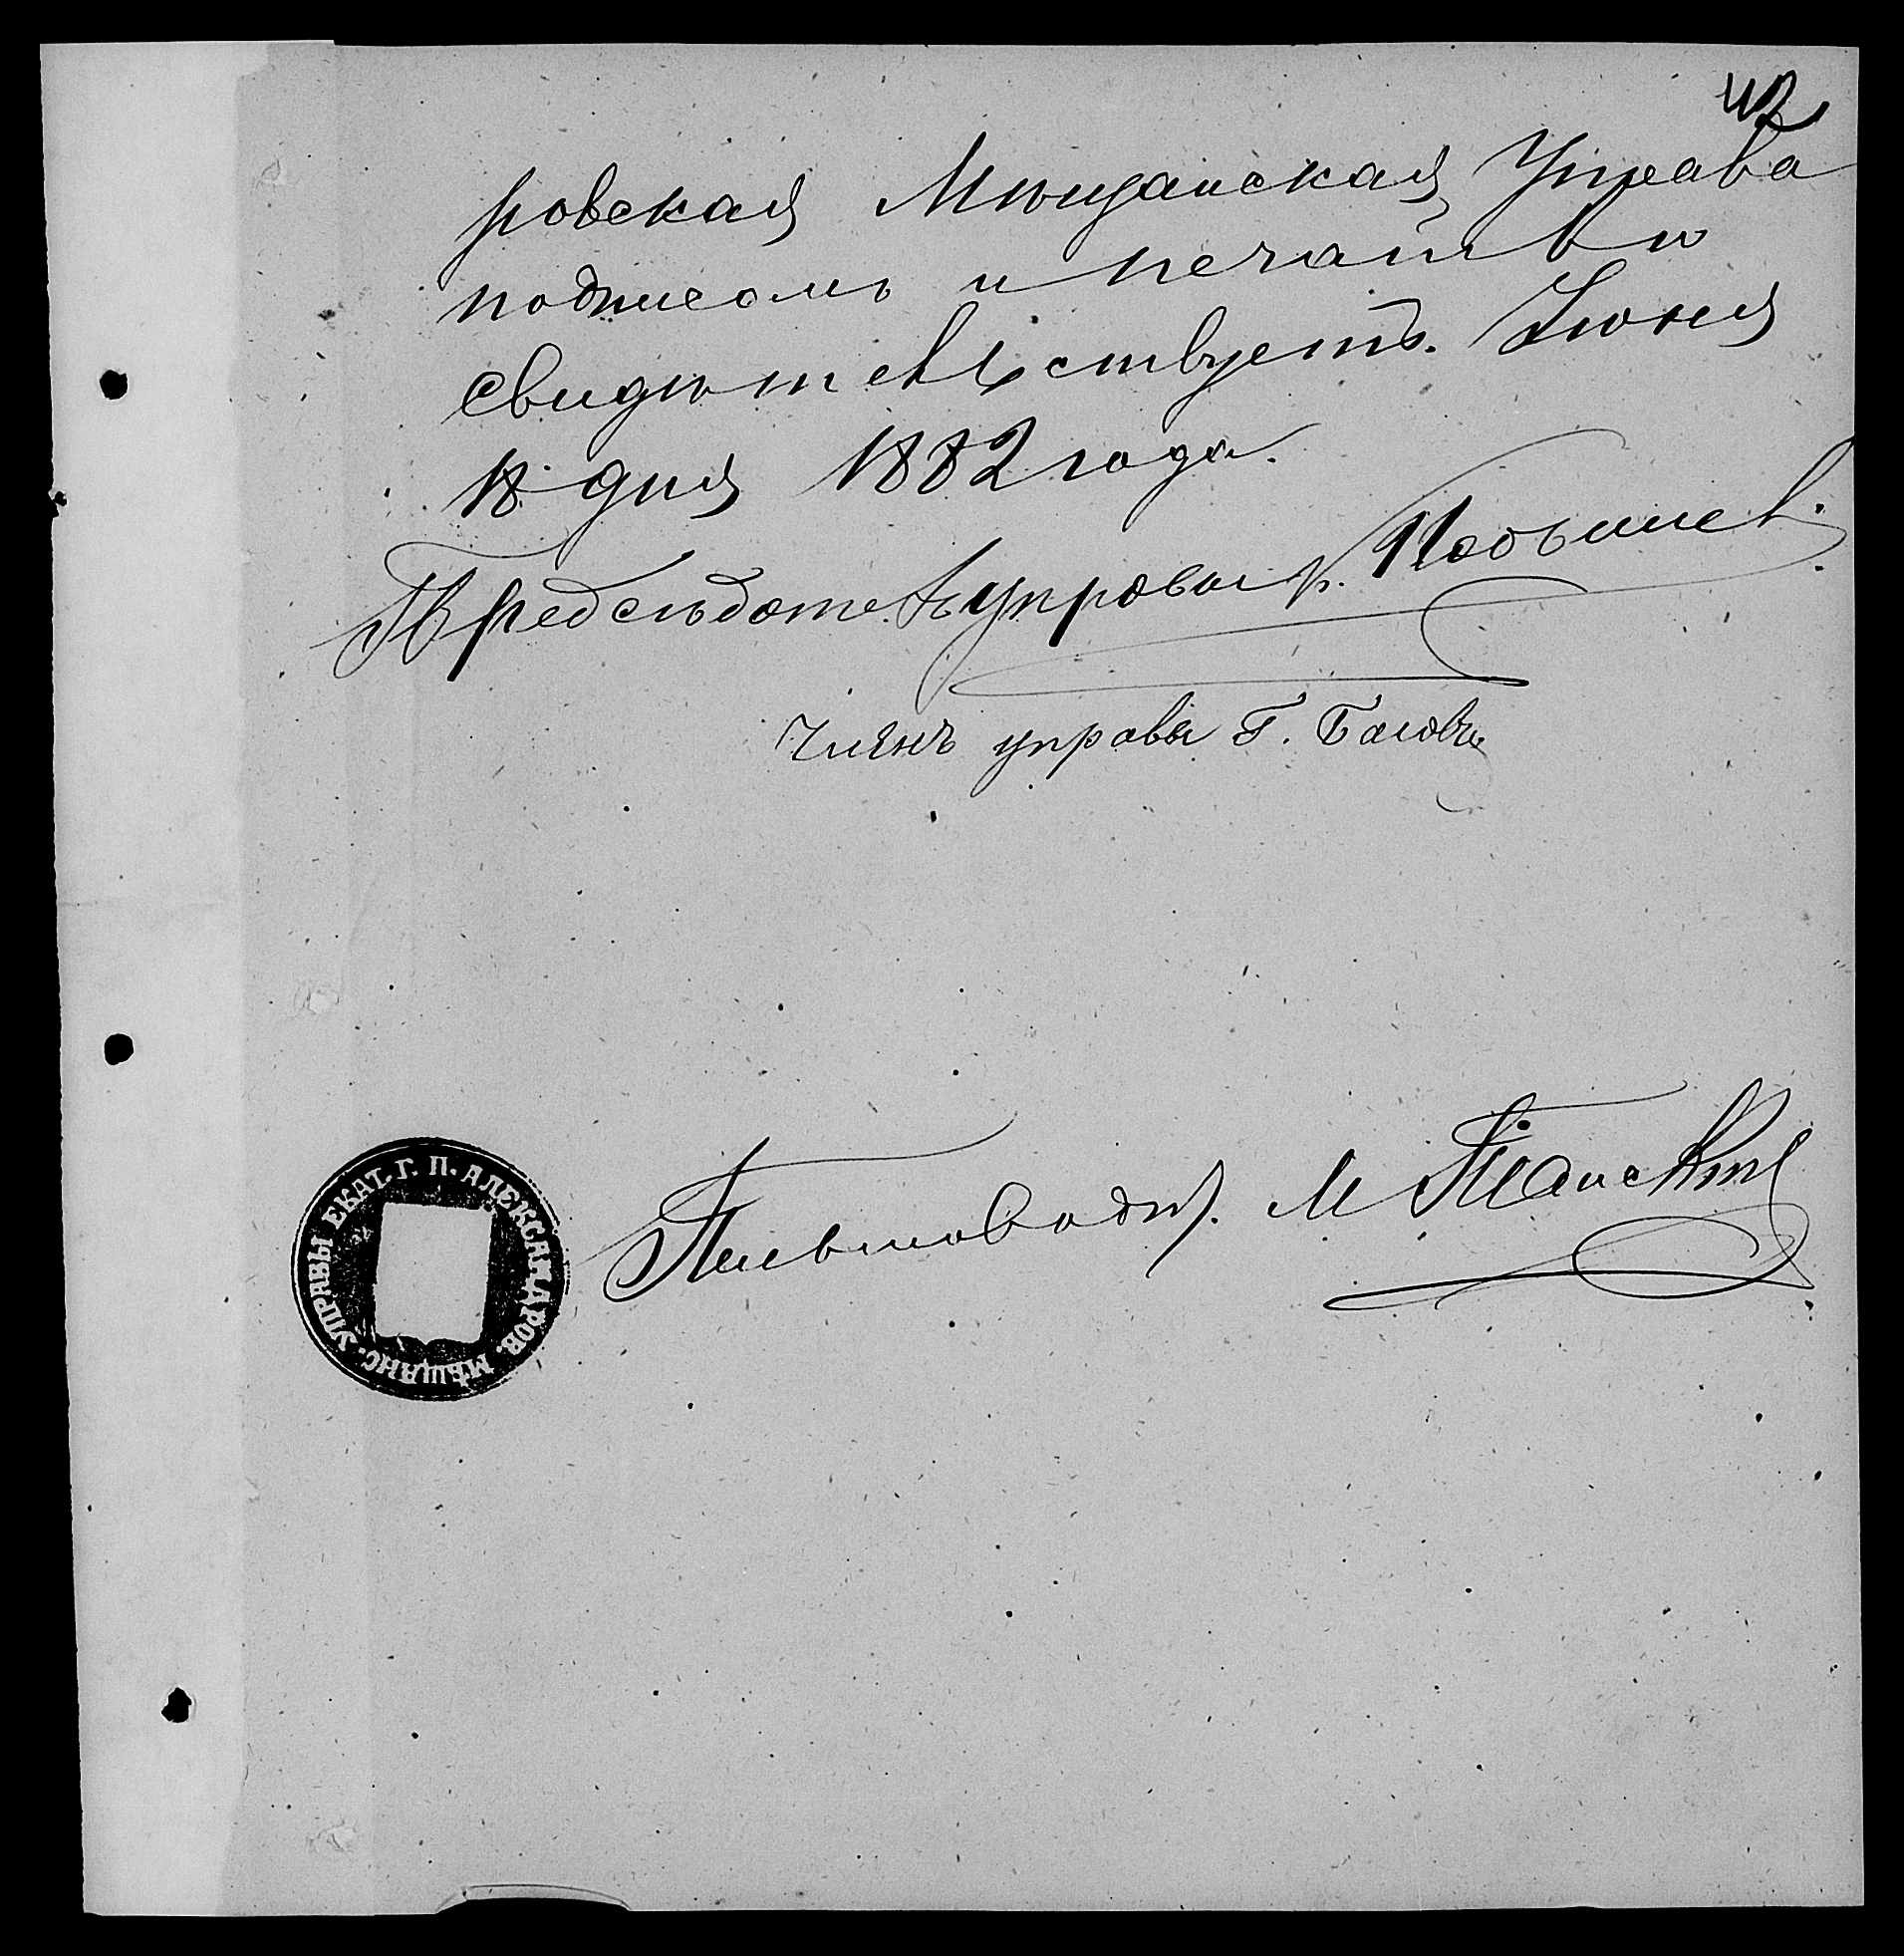 42
ровская Мѣщанская Управа
подписомъ и печатью
свидѣтельствуетъ. Іюня
18 дня 1882 года.
Предсѣдатель управы
Членъ управы Г.
Письмовод. М
УПРАВЫ ЕКАТ. Г. П. АЛЕКСАНДРОВ. МѢЩАНС.